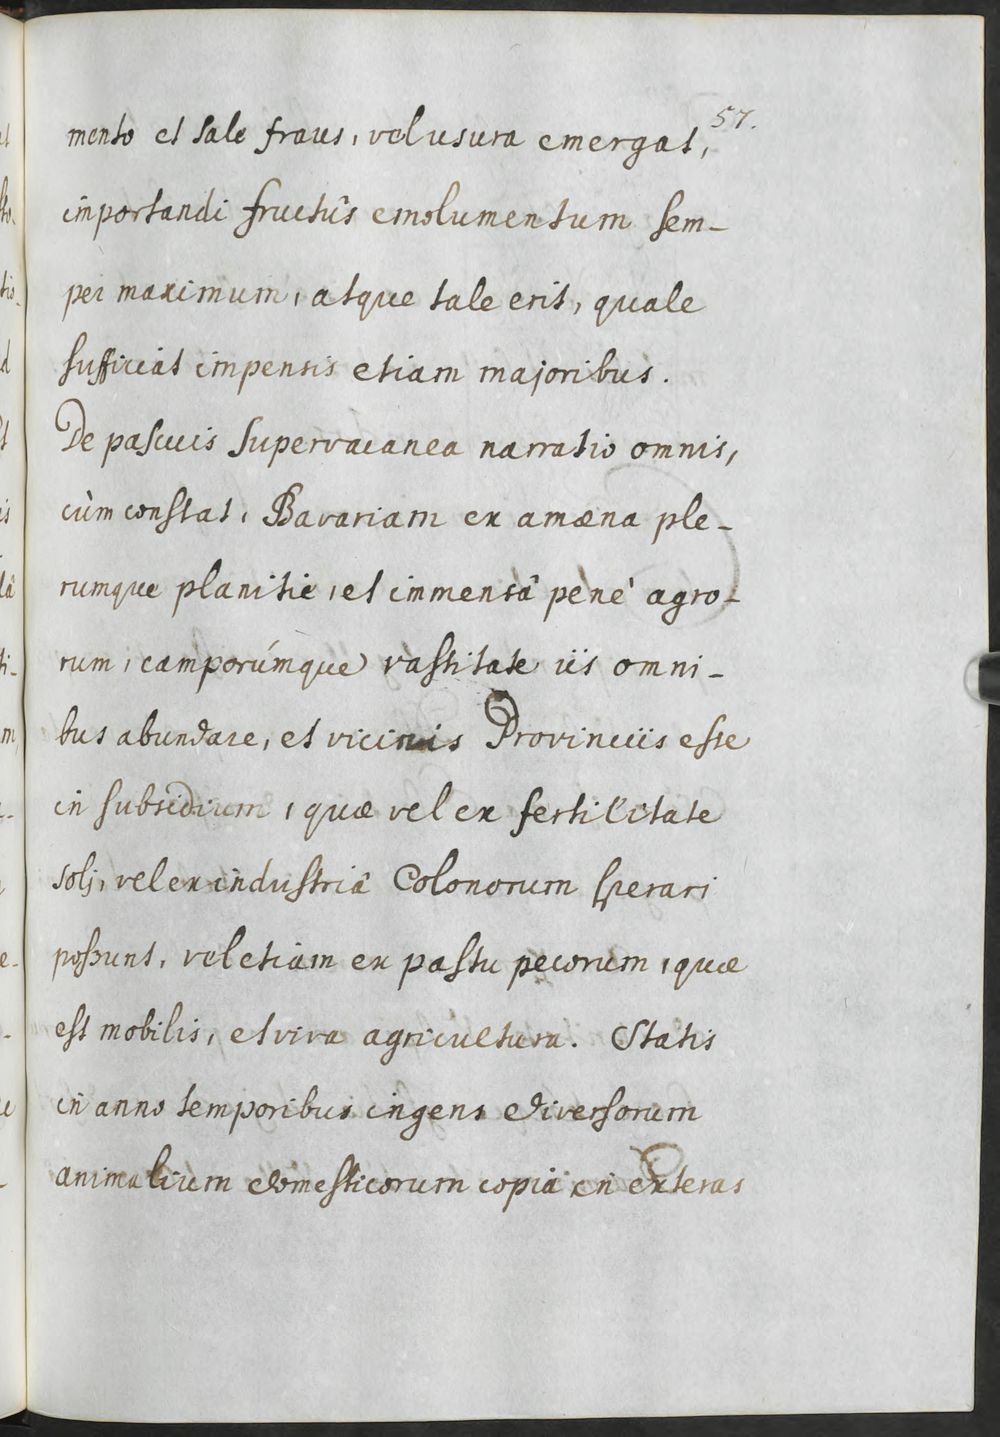 57.
mento et sale fraus, vel usura emergat,
importandi fructûs emolumentum sem-
per maximum, atque tale erit, quale
sufficiat impensis etiam majoribus.
De pascuis supervacanea narratio omnis,
cùm constat, Bavariam ex amæna ple-
rumque planitie, et inmensâ penè agro-
rum, camporúmque vastitate iis omni-
bus abundare, et vicinis Provinciis esse
in subsidium, quæ vel ex fertilitate
solj, vel ex industriâ Colonorum sperari
possunt, vel etiam ex pastu pecorum, quæ
est mobilis, et viva agricultura. Statis
in anno temporibus ingens diversorum
animalium domesticorum copia in exteras